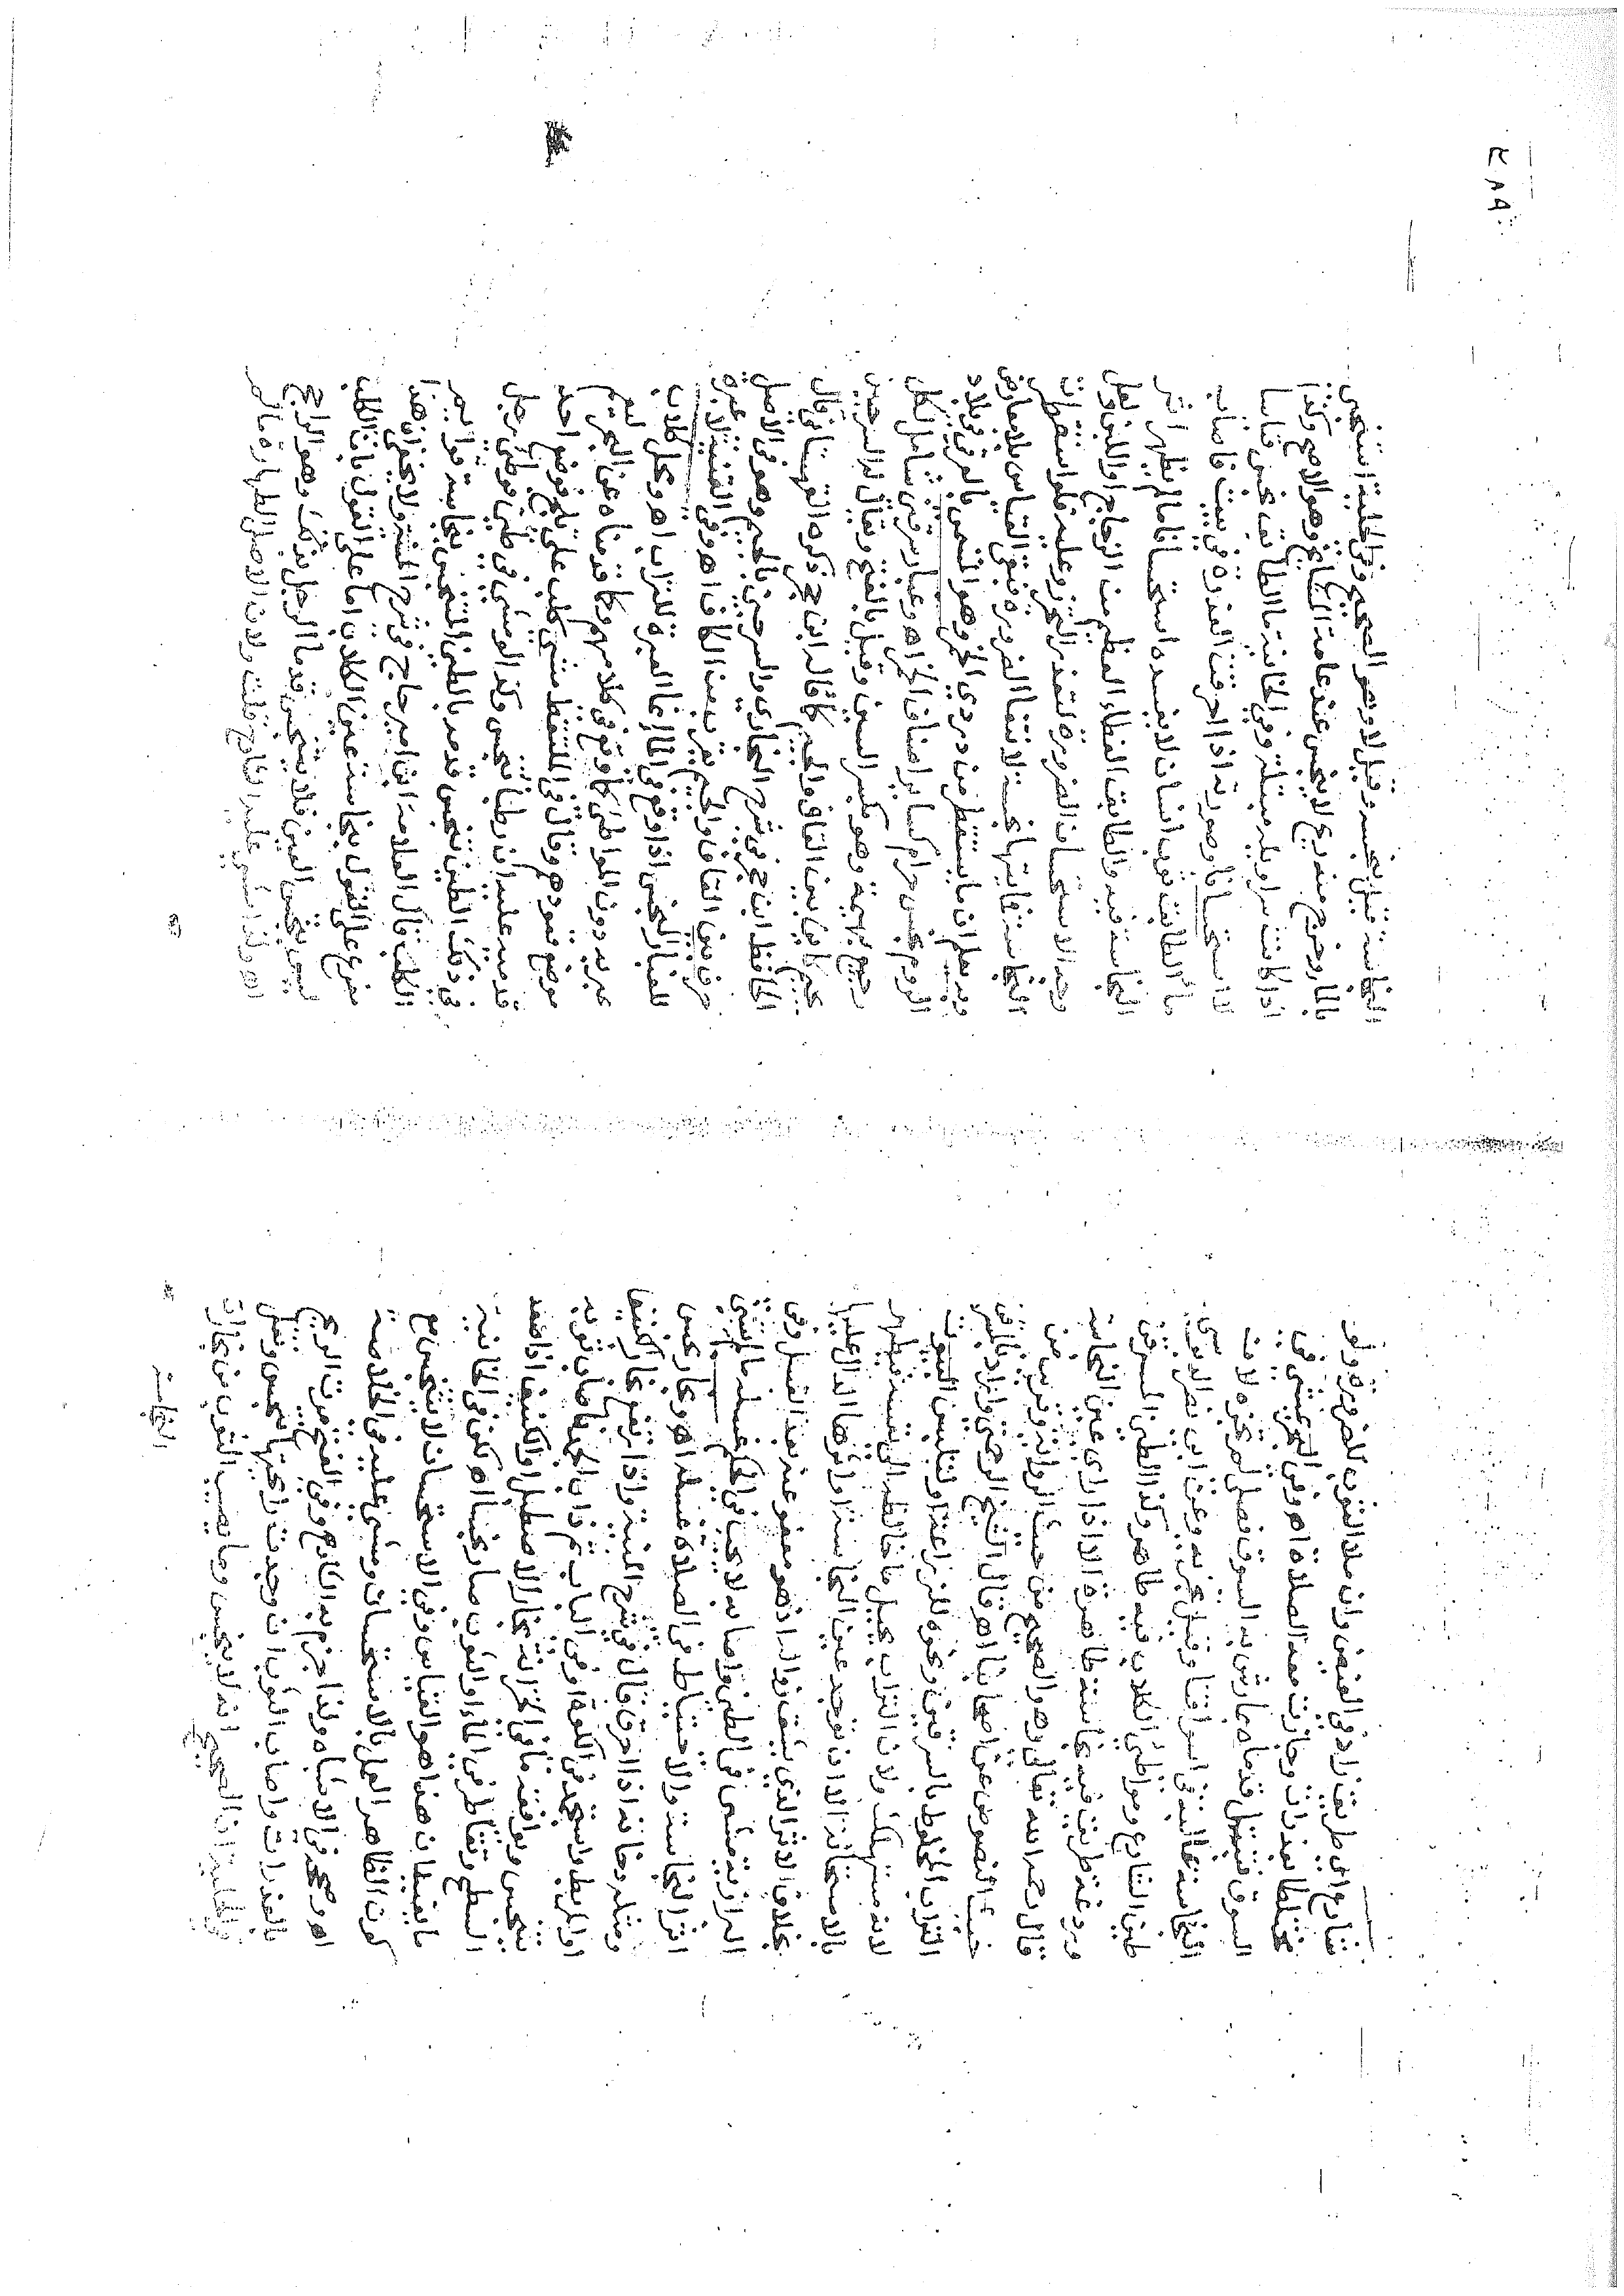 شارع اي طريق زاد في الفيض وان ملأ الثوب للضرورة ولو
مختلطا بعذرات وجازت معه الصلاة اه وفي التجنيس مشى في
السوق فتبتل قدماه بماء رش به السوق فصلى لم تجزه لان
النجاسة غالبة في اسواقنا وقيل تجزيه وعن ابي نصر الدبوسي
طين الشارع ومواطئ الكلاب فيه طاهر وكذا الطين المسرقن
وردغة طريق فيه نجاسة طاهرة الا اذا راى عين النجاسة
قال رحمه الله تعالى وهو الصحيح من حيث الرواية وقريب من
حيث المنصوص عن اصحابنا اه قال الشيخ
التراب المخلوط بالسرقين ونحوه للزراعة او لتليين السقوف
لانه مستهلك ولان التراب يحيل ما خالطه الى نفسه فيطهره
بالاستحالة الا ان توجد عين النجاسة او اثرها الدال عليها
بخلاف الاثر الذي يشق زواله اذ هو معفو عنه بعد الغسل وفي
البزازية مشى في الطين واصابه لا يجب في الحكم غسله ما لم يتبين
اثر النجاسة والاحتياط في الصلاة غسله اه وبخار نجس
ومثله دخانه اذا احرق قال في شرح المنية واذا ارتفع بخار الكنيف
او المربط واستجمد في الكوة او في الباب ثم ذاب الجمد فاصاب ثوبه
يتنجس ويوافقه ما في الخزانة بخار الاصطبل او الكنيف اذا صعد
السطح وتقاطر في الماء او الثوب صار نجسا اه لكن في الخانية
ما يفيد ان هذا هو القياس وفي الاستحسان لا يتنجس مع
كون الظاهر العمل بالاستحسان ومشى عليه في الخلاصة
اه وصححه في الاشباه ولذا جزم به الشارح وفي الفتح مرت الريح
بالعذرات واصاب الثوب ان وجدت رائحتها تنجس وقيل
والحلية ان الصحيح انه لا ينجس وما يصيب الثوب من بخارات
النجاسة
النجاسة قيل ينجسه وقيل لا وهو الصحيح وفي الحلية استنجى
بالماء وخرج منه ريح لا ينجس عند عامة المشايخ وهو الاصح وكذا
اذا كانت سراويله مبتلة وفي الخانية ماء الطابق نجس قياسا
لا استحسانا وصورته اذا احرقت العذرة في بيت فاصاب
ماء الطابق ثوب انسان لا يفسده استحسانا ما لم يظهر اثر
النجاسة فيه والطابق الغطاء العظيم من الزجاج او اللبن
وجه الاستحسان الضرورة لتعذر التحرز وعليه فلو استقطرت
النجاسة فمائيتها نجسة لانتفاء الضرورة فبقي القياس بلا معارض
وبه يعلم ان ما يستقطر من دردي الخمر وهو المسمى بالعرقي في ولاية
الروم نجس حرام كسائر اصناف الخمر اه
رجيع بهيمة وهو بكسر السين وقيل بالفتح ويقال له السرجين
بجيم كما بين القاف والجيم كما قاله ابن حجر ذكره القهستاني وقال
الحافظ ابن حجر في شرح البخاري والسرجين بالجيم وهو في الاصل
حرف بين القاف والجيم يقرب من الكاف اه وفي القنية لا عبرة
للغبار النجس اذا وقع في الماء انما العبرة للتراب اه ومحل كلاب
غيره دون المواطئ كما وقع في كلامهم وكما قدمناه عن البحر
موضع قعودهم وقال في الملتقط مشى كلب على ثلج فوضع احد
قدميه عليه ان رطبا نجس وكذا لو مشى في طين فوطئ رجل
في ذلك الطين تنجس قدمه
الكلب قال العلامة ابن امير حاج في شرح المنية ولا يخفى ان هذا
مفرع على القول بنجاسة عين الكلاب اما على القول بان الكلب
ليس نجس العين فلا ينجس قدما الرجل بذلك وهو الراجح
اه ولذا مشى عليه الشارح قلت ولان الاصل الطهارة ما لم